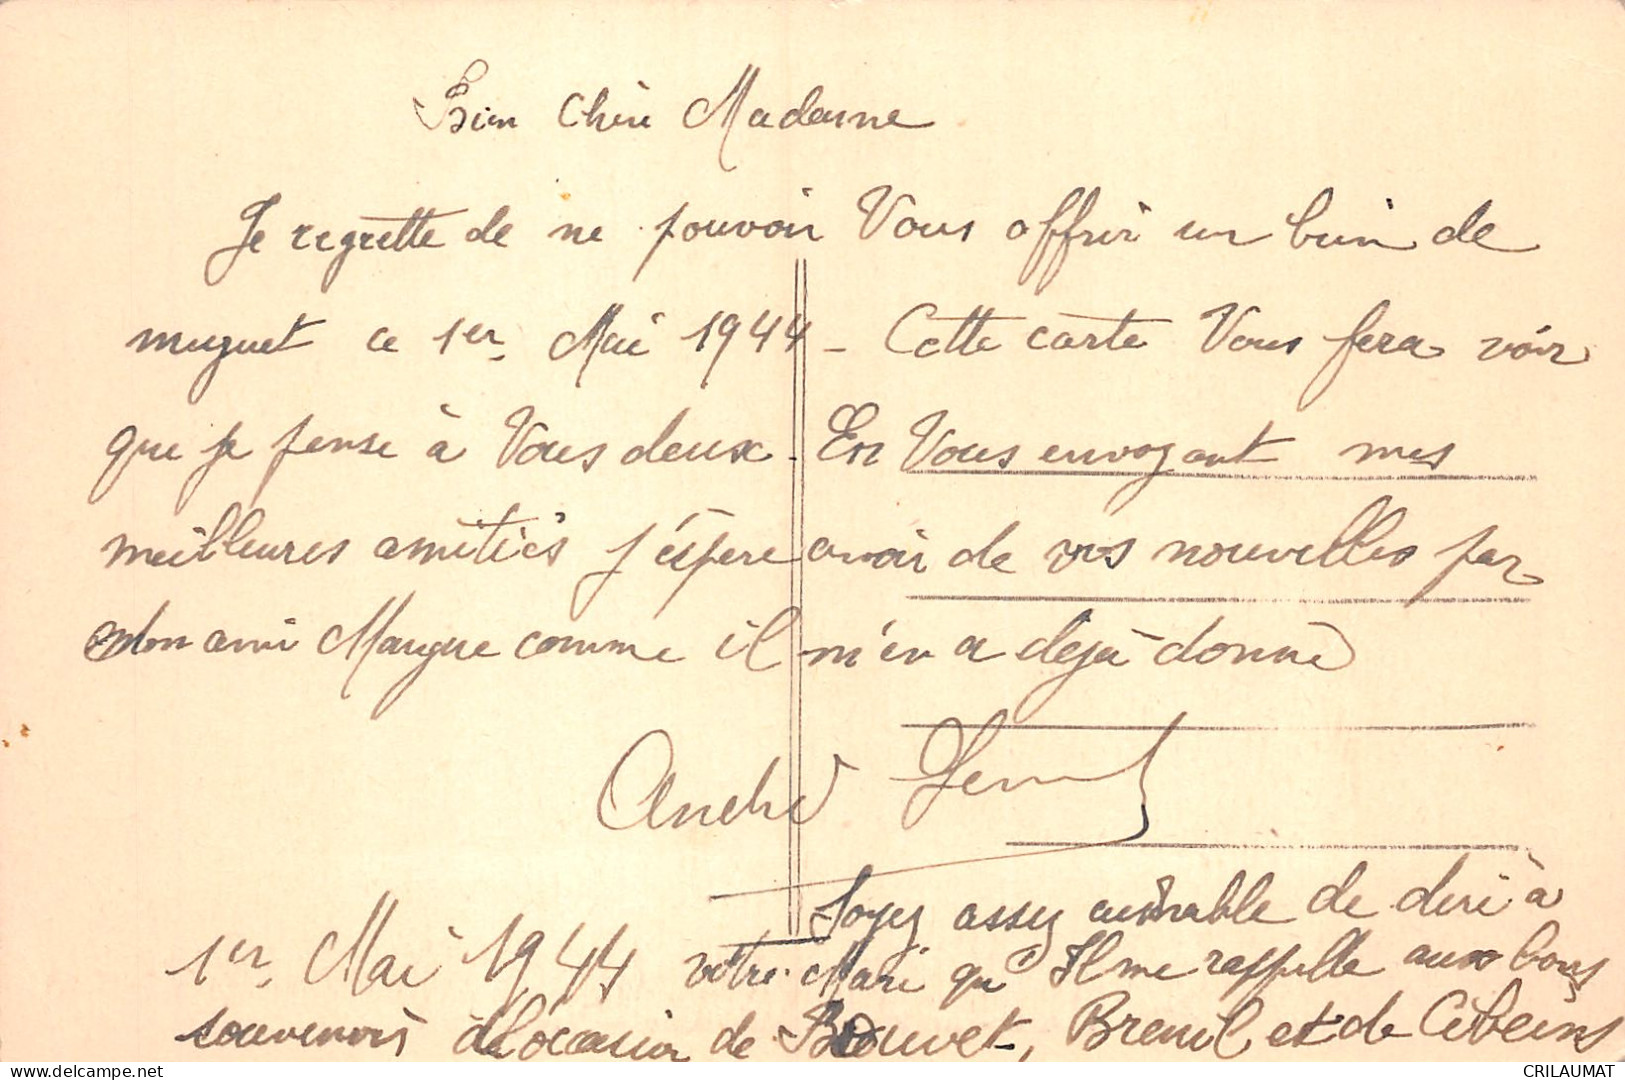 Bien Chère Madame
Je regrette de ne pouvoir Vous offrir un brin de
muguet ce 1er Mai 1944 - Cette carte Vous fera voir
que je pense à Vous deux. En Vous envoyant mes
meilleures amitiés J'éspère avoir de vos nouvelles par
mon ami Maugue comme il m'en a dejà donné
André
Soyez assez aimable de dire à
1er Mai 1944 votre Mari qu'Il me rappelle aux bons
souvenirs à l'occasion de Bouvet, Breuil et de Cibeins
CRILAUMAT